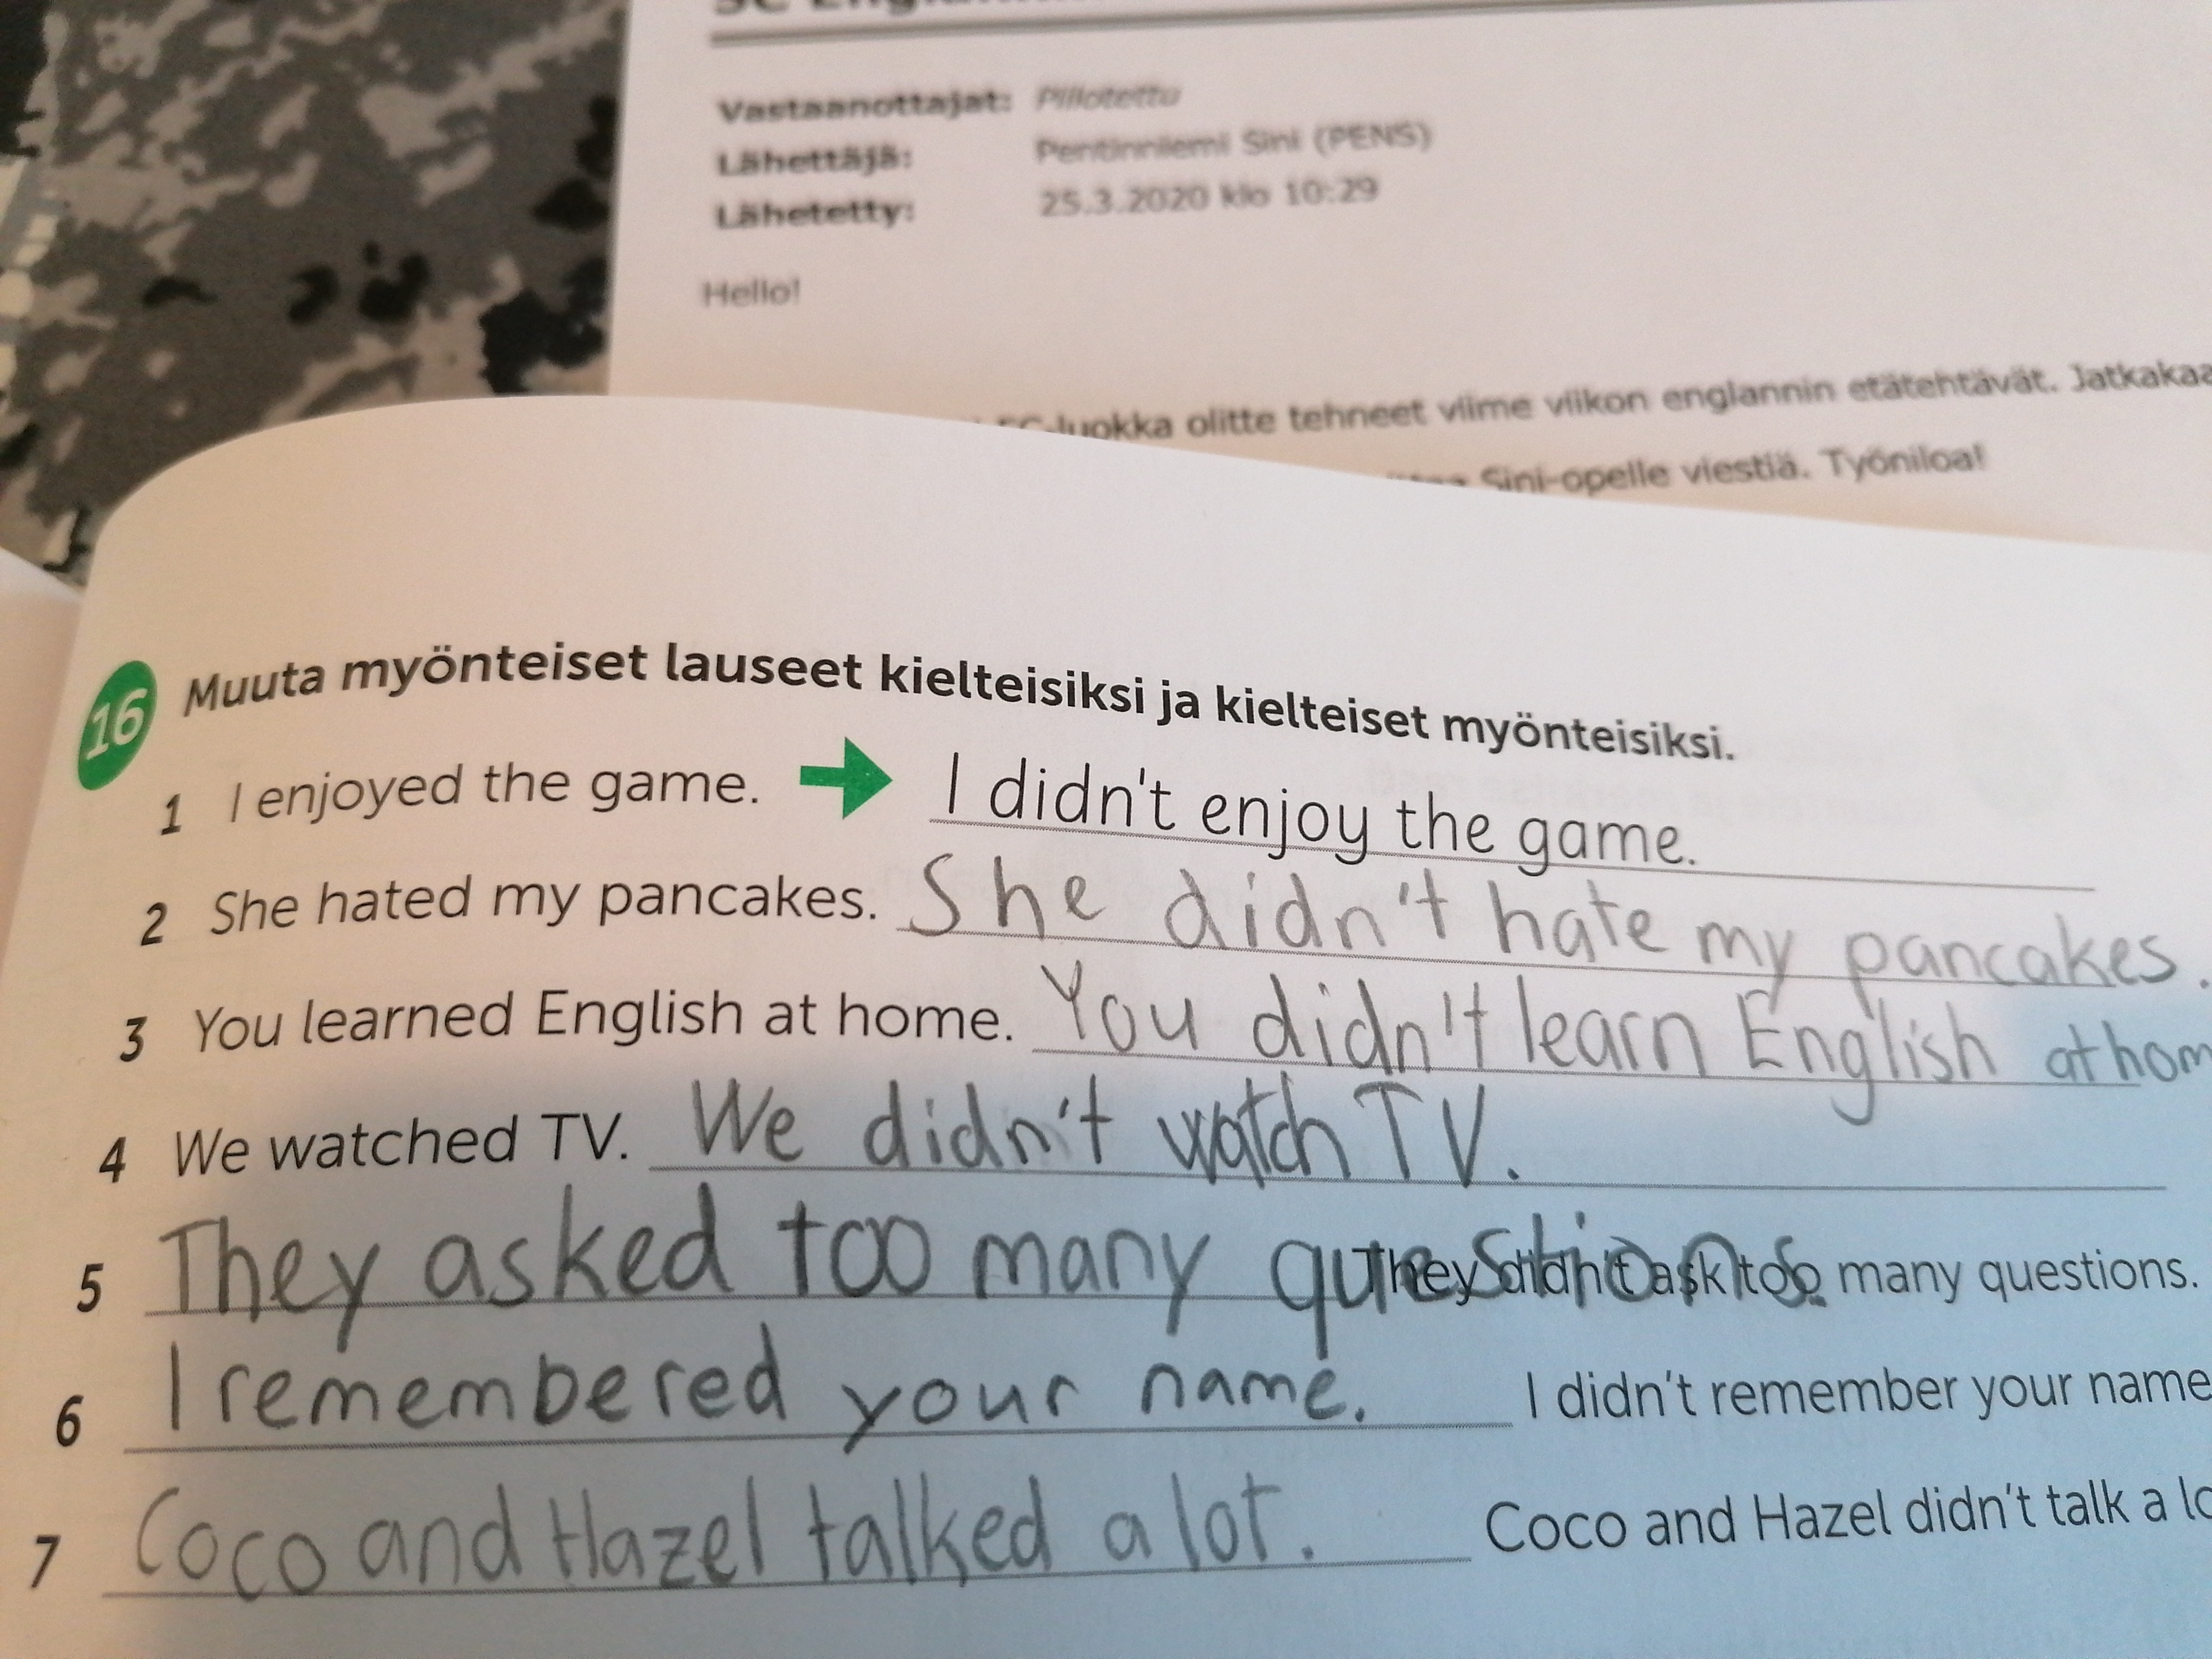 5C Englannin
Vastaanottajat: Piilotettu
Lähettäjä: Pentinniemi Sini (PENS)
Lähetetty: 25.3.2020 klo 10:29
Hello!
5C-luokka olitte tehneet viime viikon englannin etätehtävät. Jatkakaa
Sini-opelle viestiä. Työniloa!
16 Muuta myönteiset lauseet kielteisiksi ja kielteiset myönteisiksi.
1 I enjoyed the game. I didn't enjoy the game.
2 She hated my pancakes. She didn't hate my pancakes.
3 You learned English at home. You didn't learn English at hom
4 We watched TV. We didn't watch TV.
5 They asked too many questions. They didn't ask too many questions.
6 I remembered your name. I didn't remember your name
7 Coco and Hazel talked a lot. Coco and Hazel didn't talk a lo